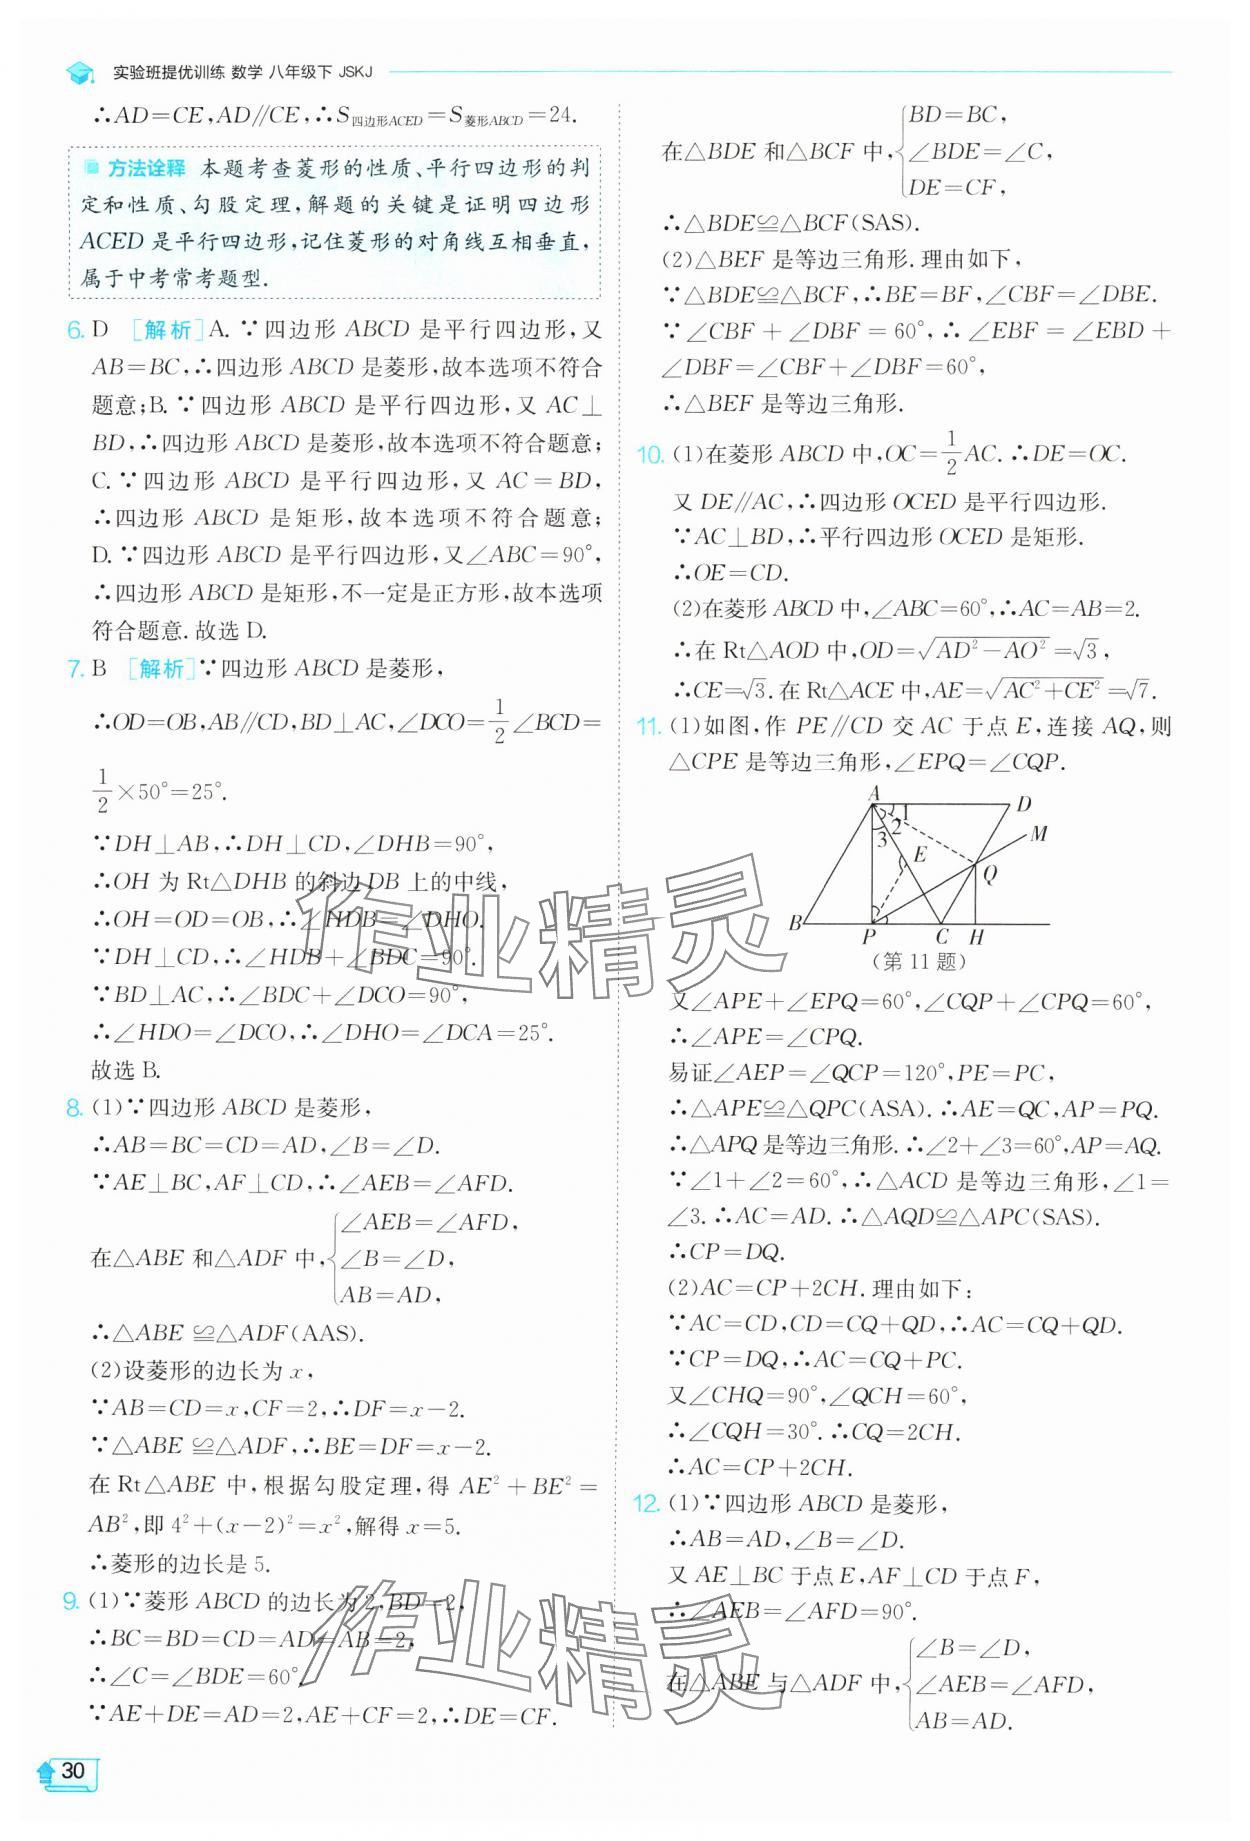 实验班提优训练 数学 八年级下 JSKJ
∴AD=CE,AD∥CE,∴S四边形ACED=S菱形ABCD=24.
方法诠释 本题考查菱形的性质、平行四边形的判
定和性质、勾股定理,解题的关键是证明四边形
ACED是平行四边形,记住菱形的对角线互相垂直,
属于中考常考题型.
6. D [解析]A.∵四边形ABCD是平行四边形,又
AB=BC,∴四边形ABCD是菱形,故本选项不符合
题意;B.∵四边形ABCD是平行四边形,又AC⊥
BD,∴四边形ABCD是菱形,故本选项不符合题意;
C.∵四边形ABCD是平行四边形,又AC=BD,
∴四边形ABCD是矩形,故本选项不符合题意;
D.∵四边形ABCD是平行四边形,又∠ABC=90°,
∴四边形ABCD是矩形,不一定是正方形,故本选项
符合题意.故选D.
7. B [解析]∵四边形ABCD是菱形,
∴OD=OB,AB∥CD,BD⊥AC,∠DCO=1/2∠BCD=
1/2×50°=25°.
∵DH⊥AB,∴DH⊥CD,∠DHB=90°,
∴OH为Rt△DHB的斜边DB上的中线,
∴OH=OD=OB,∴∠HDB=∠DHO.
∵DH⊥CD,∴∠HDB+∠BDC=90°.
∵BD⊥AC,∴∠BDC+∠DCO=90°,
∴∠HDO=∠DCO,∴∠DHO=∠DCA=25°.
故选B.
8. (1)∵四边形ABCD是菱形,
∴AB=BC=CD=AD,∠B=∠D.
∵AE⊥BC,AF⊥CD,∴∠AEB=∠AFD.
∠AEB=∠AFD,
在△ABE和△ADF中,{∠B=∠D,
AB=AD,
∴△ABE≌△ADF(AAS).
(2)设菱形的边长为x,
∵AB=CD=x,CF=2,∴DF=x-2.
∵△ABE≌△ADF,∴BE=DF=x-2.
在Rt△ABE中,根据勾股定理,得AE²+BE²=
AB²,即4²+(x-2)²=x²,解得x=5.
∴菱形的边长是5.
9. (1)∵菱形ABCD的边长为2,BD=2,
∴BC=BD=CD=AD=AB=2,
∴∠C=∠BDE=60°.
∵AE+DE=AD=2,AE+CF=2,∴DE=CF.
BD=BC,
在△BDE和△BCF中,{∠BDE=∠C,
DE=CF,
∴△BDE≌△BCF(SAS).
(2)△BEF是等边三角形.理由如下,
∵△BDE≌△BCF,∴BE=BF,∠CBF=∠DBE.
∵∠CBF+∠DBF=60°,∴∠EBF=∠EBD+
∠DBF=∠CBF+∠DBF=60°,
∴△BEF是等边三角形.
10. (1)在菱形ABCD中,OC=1/2AC.∴DE=OC.
又DE∥AC,∴四边形OCED是平行四边形.
∵AC⊥BD,∴平行四边形OCED是矩形.
∴OE=CD.
(2)在菱形ABCD中,∠ABC=60°,∴AC=AB=2.
∴在Rt△AOD中,OD=√(AD²-AO²)=√3,
∴CE=√3.在Rt△ACE中,AE=√(AC²+CE²)=√7.
11. (1)如图,作PE∥CD交AC于点E,连接AQ,则
△CPE是等边三角形,∠EPQ=∠CQP.
A D
1
2 M
3
E
Q
B P C H
(第11题)
又∠APE+∠EPQ=60°,∠CQP+∠CPQ=60°,
∴∠APE=∠CPQ.
易证∠AEP=∠QCP=120°,PE=PC,
∴△APE≌△QPC(ASA).∴AE=QC,AP=PQ.
∴△APQ是等边三角形.∴∠2+∠3=60°,AP=AQ.
∵∠1+∠2=60°,∴△ACD是等边三角形,∠1=
∠3.∴AC=AD.∴△AQD≌△APC(SAS).
∴CP=DQ.
(2)AC=CP+2CH.理由如下:
∵AC=CD,CD=CQ+QD,∴AC=CQ+QD.
∵CP=DQ,∴AC=CQ+PC.
又∠CHQ=90°,∠QCH=60°,
∴∠CQH=30°.∴CQ=2CH.
∴AC=CP+2CH.
12. (1)∵四边形ABCD是菱形,
∴AB=AD,∠B=∠D.
又AE⊥BC于点E,AF⊥CD于点F,
∴∠AEB=∠AFD=90°.
∠B=∠D,
在△ABE与△ADF中,{∠AEB=∠AFD,
AB=AD.
作业精灵
作业精灵
30